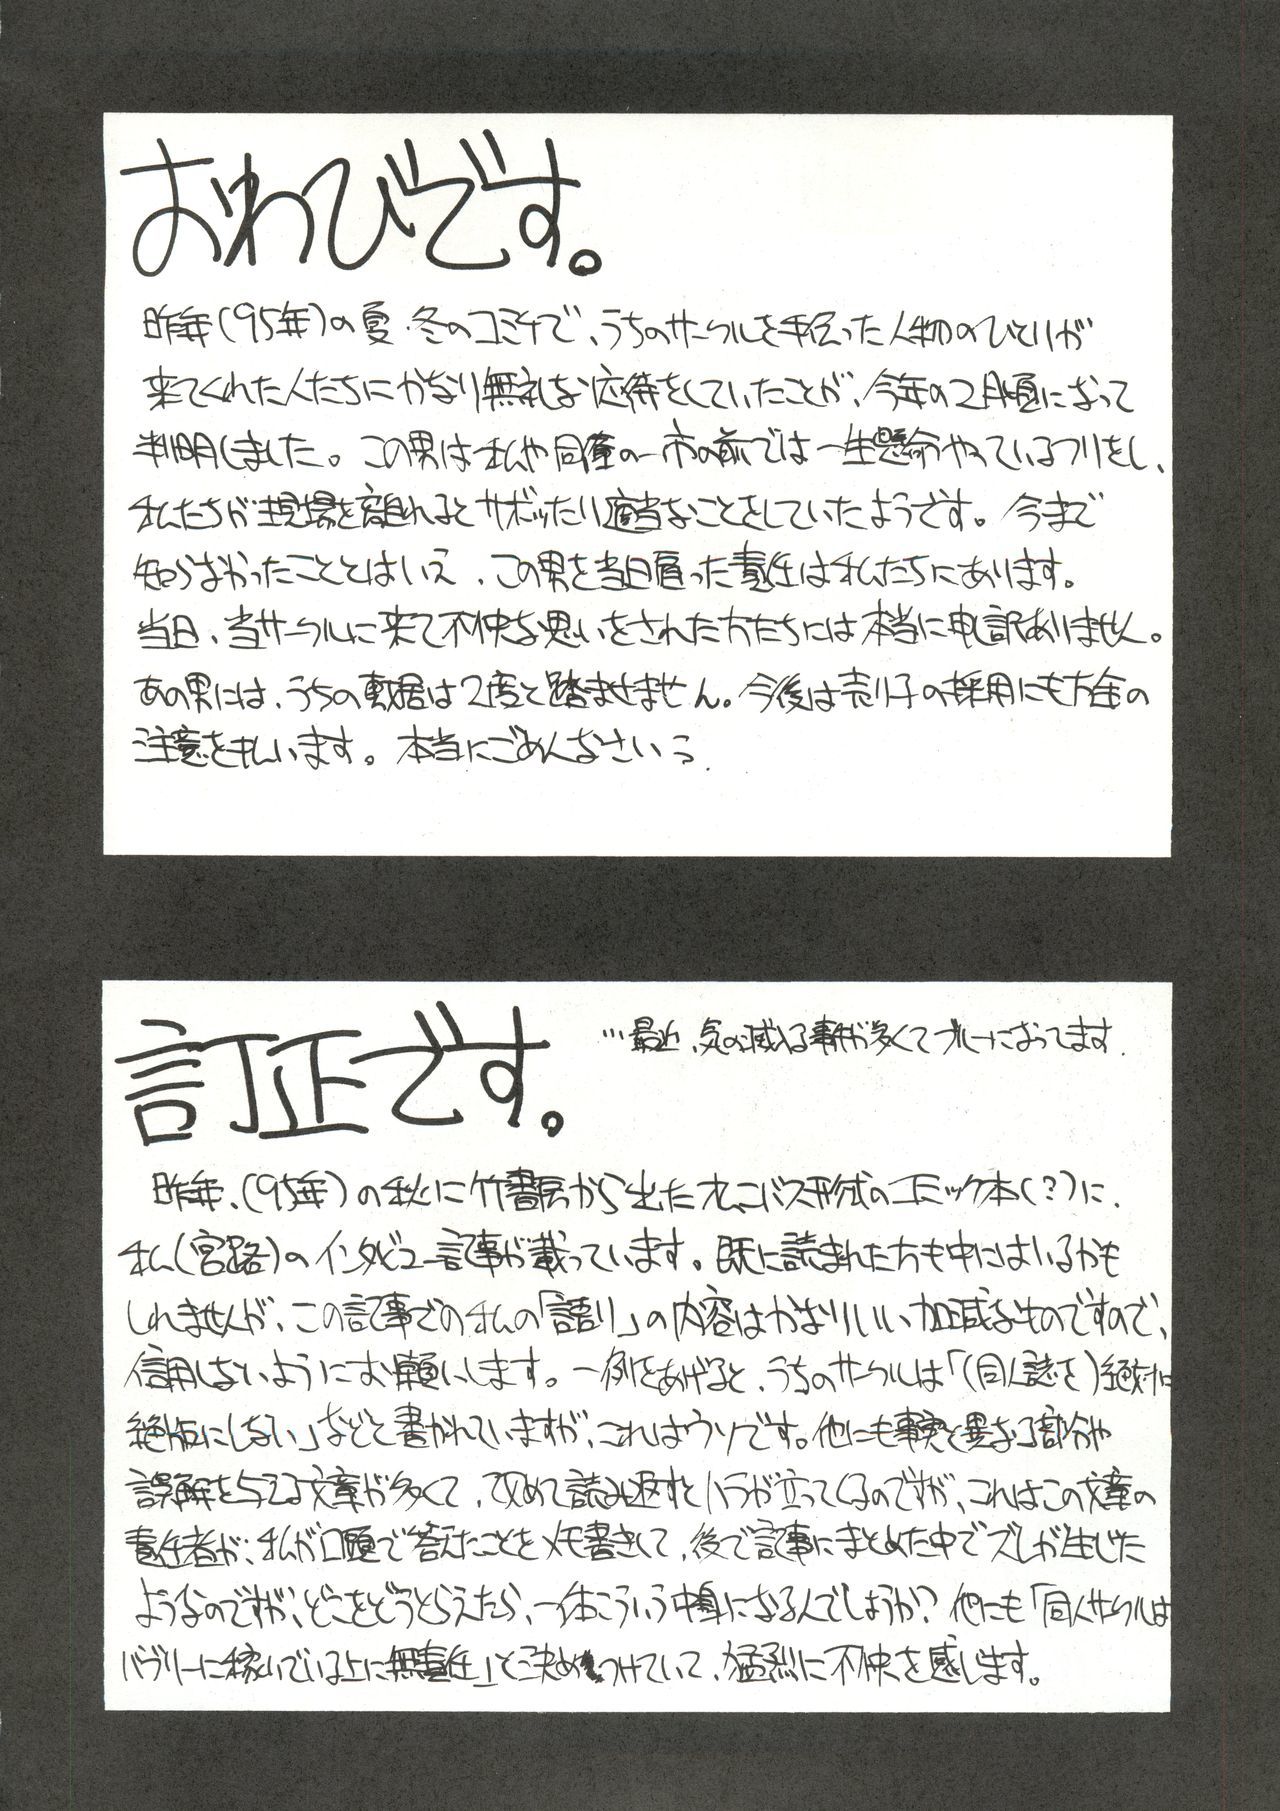 おわびです。
昨年(95年)の夏・冬のコミケで、うちのサークルを手伝った人物のひとりが
来てくれた人たちにかなり無礼な応待をしていたことが、今年の2月頃になって
判明しました。この男は私や同僚の一市の前では一生懸命やっているフリをし、
私たちが現場を離れるとサボッたり適当なことをしていたようです。今まで
知らなかったこととはいえ、この男を当日雇った責任は私たちにあります。
当日、当サークルに来て不快な思いをされた方たちには本当に申し訳ありません。
あの男には、うちの敷居は2度と踏ませません。今後は売り子の採用にも万全の
注意を払います。本当にごめんなさいっ.
訂正です。
…最近、気の滅入る事件が多くてブルーになってます.
昨年、(95年)の秋に竹書房から出たオムニバス形式のコミック本(?)に、
私(宮路)のインタビュー記事が載っています。既に読まれた方も中にはいるかも
しれませんが、この記事での私の「語り」の内容はかなりいい加減なものですので、
信用しないようにお願いします。一例をあげると、うちのサークルは「(同人誌を)絶対に
絶版にしない」などと書かれていますが、これはウソです。他にも事実と異なる部分や
誤解を与える文章が多くて、改めて読み返すとハラが立ってくるのですが、これはこの文章の
責任者が、私が口頭で答えたことをメモ書きして、後で記事にまとめた中でズレが生じた
ようなのですが、どこをどうとらえたら、一体こういう中身になるんでしょうか？他にも「同人サークルは
バブリーに稼いでいる上に無責任」と決めつけていて、猛烈に不快を感じます。